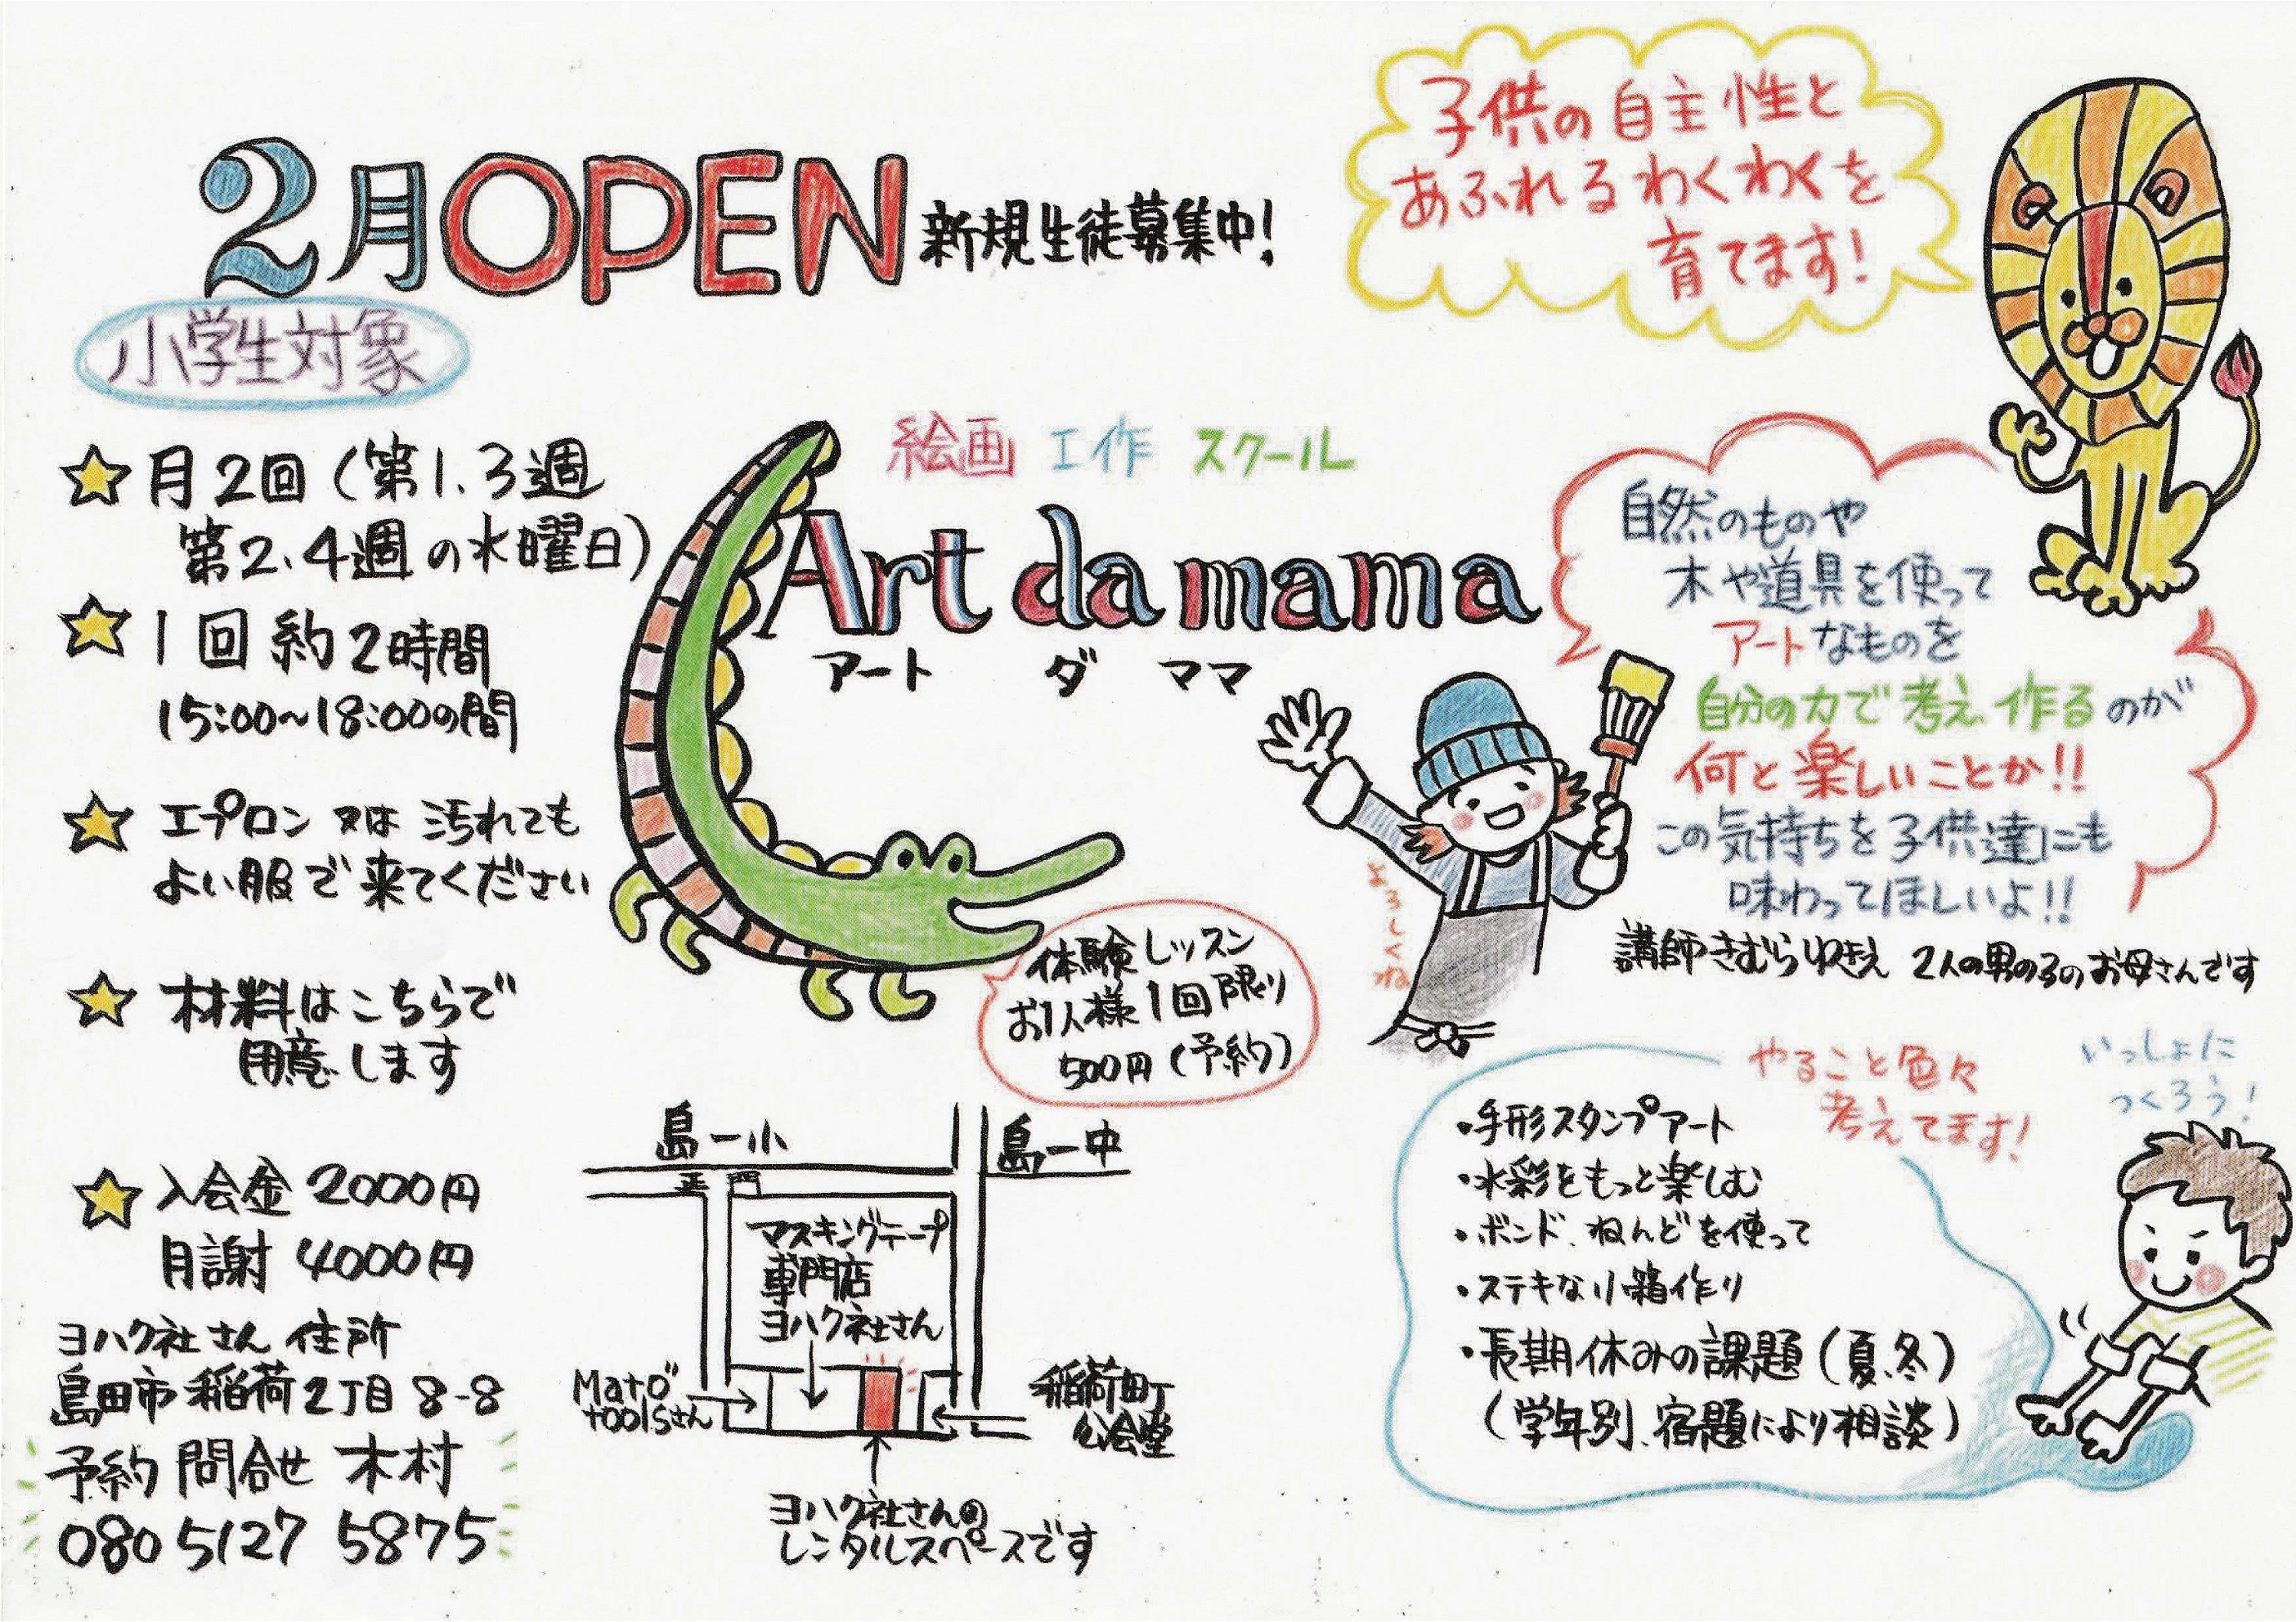 2月OPEN 新規生徒募集中!
子供の自主性と
あふれるわくわくを
育てます!
小学生対象
月2回(第1.3週
第2.4週の水曜日)
1回約2時間
15:00~18:00の間
エプロン又は汚れても
よい服で来てください
材料はこちらで
用意します
入会金 2000円
月謝 4000円
ヨハク社さん住所
島田市稲荷2丁目8-8
予約 問合せ 木村
080 5127 5875
絵画 工作 スクール
Art da mama
アート ダ ママ
体験レッスン
お1人様1回限り
500円(予約)
島一小
島一中
正門
マスキングテープ
専門店
ヨハク社さん
Mato"
toolsさん
稲荷町
公会堂
ヨハク社さんの
レンタルスペースです
自然のものや
木や道具を使って
アートなものを
自分の力で考え作るのが
何と楽しいことか!!
この気持ちを子供達にも
味わってほしいよ!!
よろしくね
講師きむらゆきえ 2人の男の子のお母さんです
やること色々
考えてます!
いっしょに
つくろう!
・手形スタンプアート
・水彩をもっと楽しむ
・ボンド、ねんどを使って
・ステキな小箱作り
・長期休みの課題(夏、冬)
(学年別、宿題により相談)